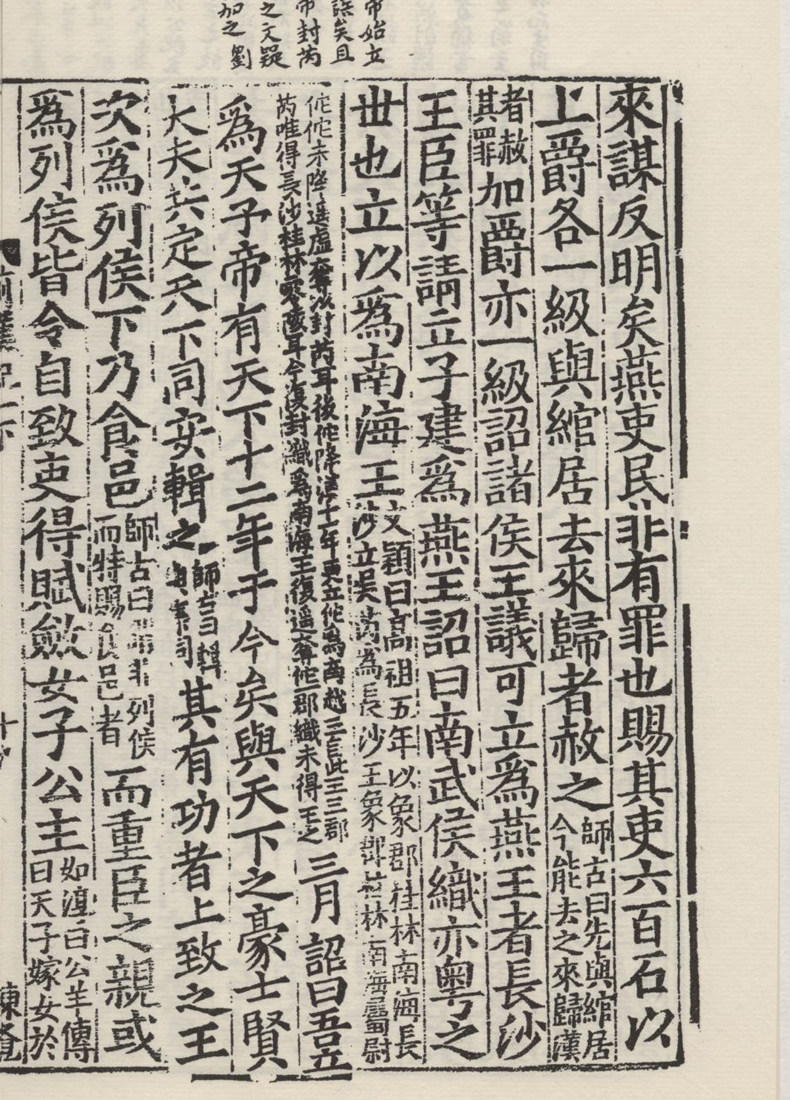 帝始立
誤矣且
帝封芮
之文疑
加之劉
來謀反明矣燕吏民非有罪也賜其吏六百石以
上爵各一級與綰居去來歸者赦之師古曰先與綰居
今能去之來歸漢
者赦
其罪加爵亦一級詔諸侯王議可立爲燕王者長沙
王臣等請立子建爲燕王詔曰南武侯織亦粵之
世也立以爲南海王文穎曰高祖五年以象郡桂林南海長
沙立吳芮爲長沙王象郡桂林南海屬尉
佗佗未降遥虛奪以封芮耳後佗降漢十一年更立佗爲南越王自此王三郡
芮唯得長沙桂林零陵耳今復封織爲南海王復遥奪佗一郡織未得王之三月詔曰吾立
爲天子帝有天下十二年于今矣與天下之豪士賢
大夫共定天下同安輯之師古曰輯
與集同其有功者上致之王
次爲列侯下乃食邑師古曰謂非列侯
而特賜食邑者而重臣之親或
爲列侯皆令自致吏得賦斂女子公主如淳曰公羊傳
曰天子嫁女於
前漢紀一下